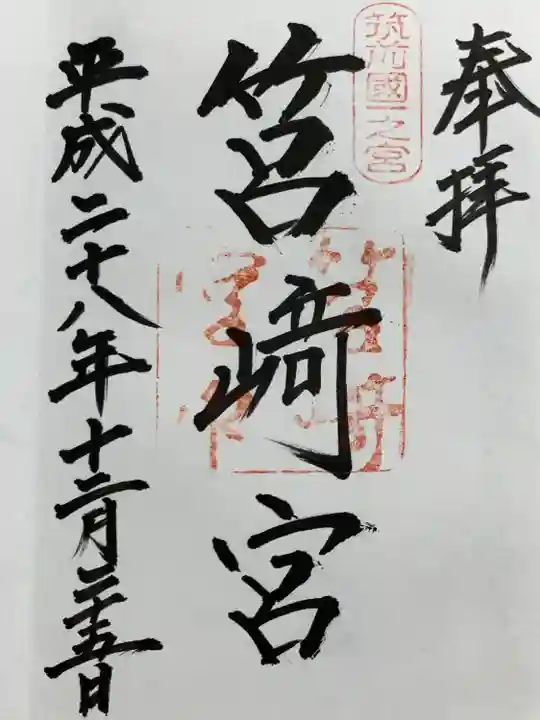 奉拝
筑前國一之宮
筥﨑宮
平成二十八年十二月二十五日